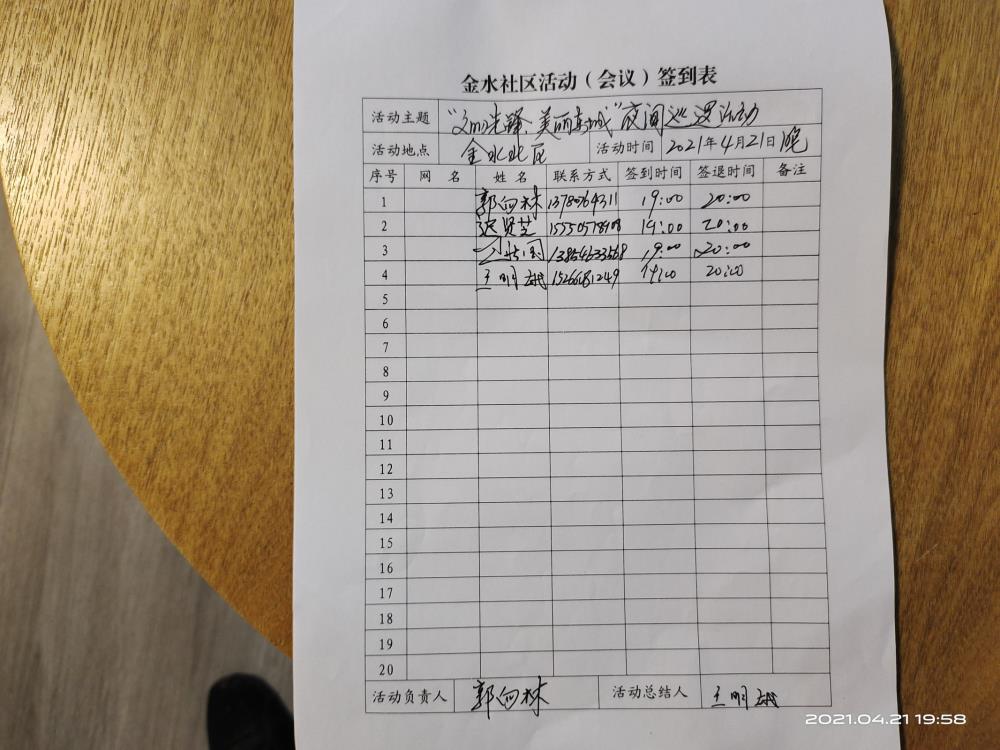 金水社区活动（会议）签到表
活动主题 "文明先锋、美丽东城"夜间巡逻活动
活动地点 金水北区 活动时间 2021年4月21日晚
序号 网 名 姓 名 联系方式 签到时间 签退时间 备注
1 郭向林 13780764311 19:00 20:00
2 迟贤芝 19:00 20:00
3 19:00 20:00
4 王明 19:00 20:00
5
6
7
8
9
10
11
12
13
14
15
16
17
18
19
20
活动负责人 郭向林 活动总结人 王明
2021.04.21 19:58